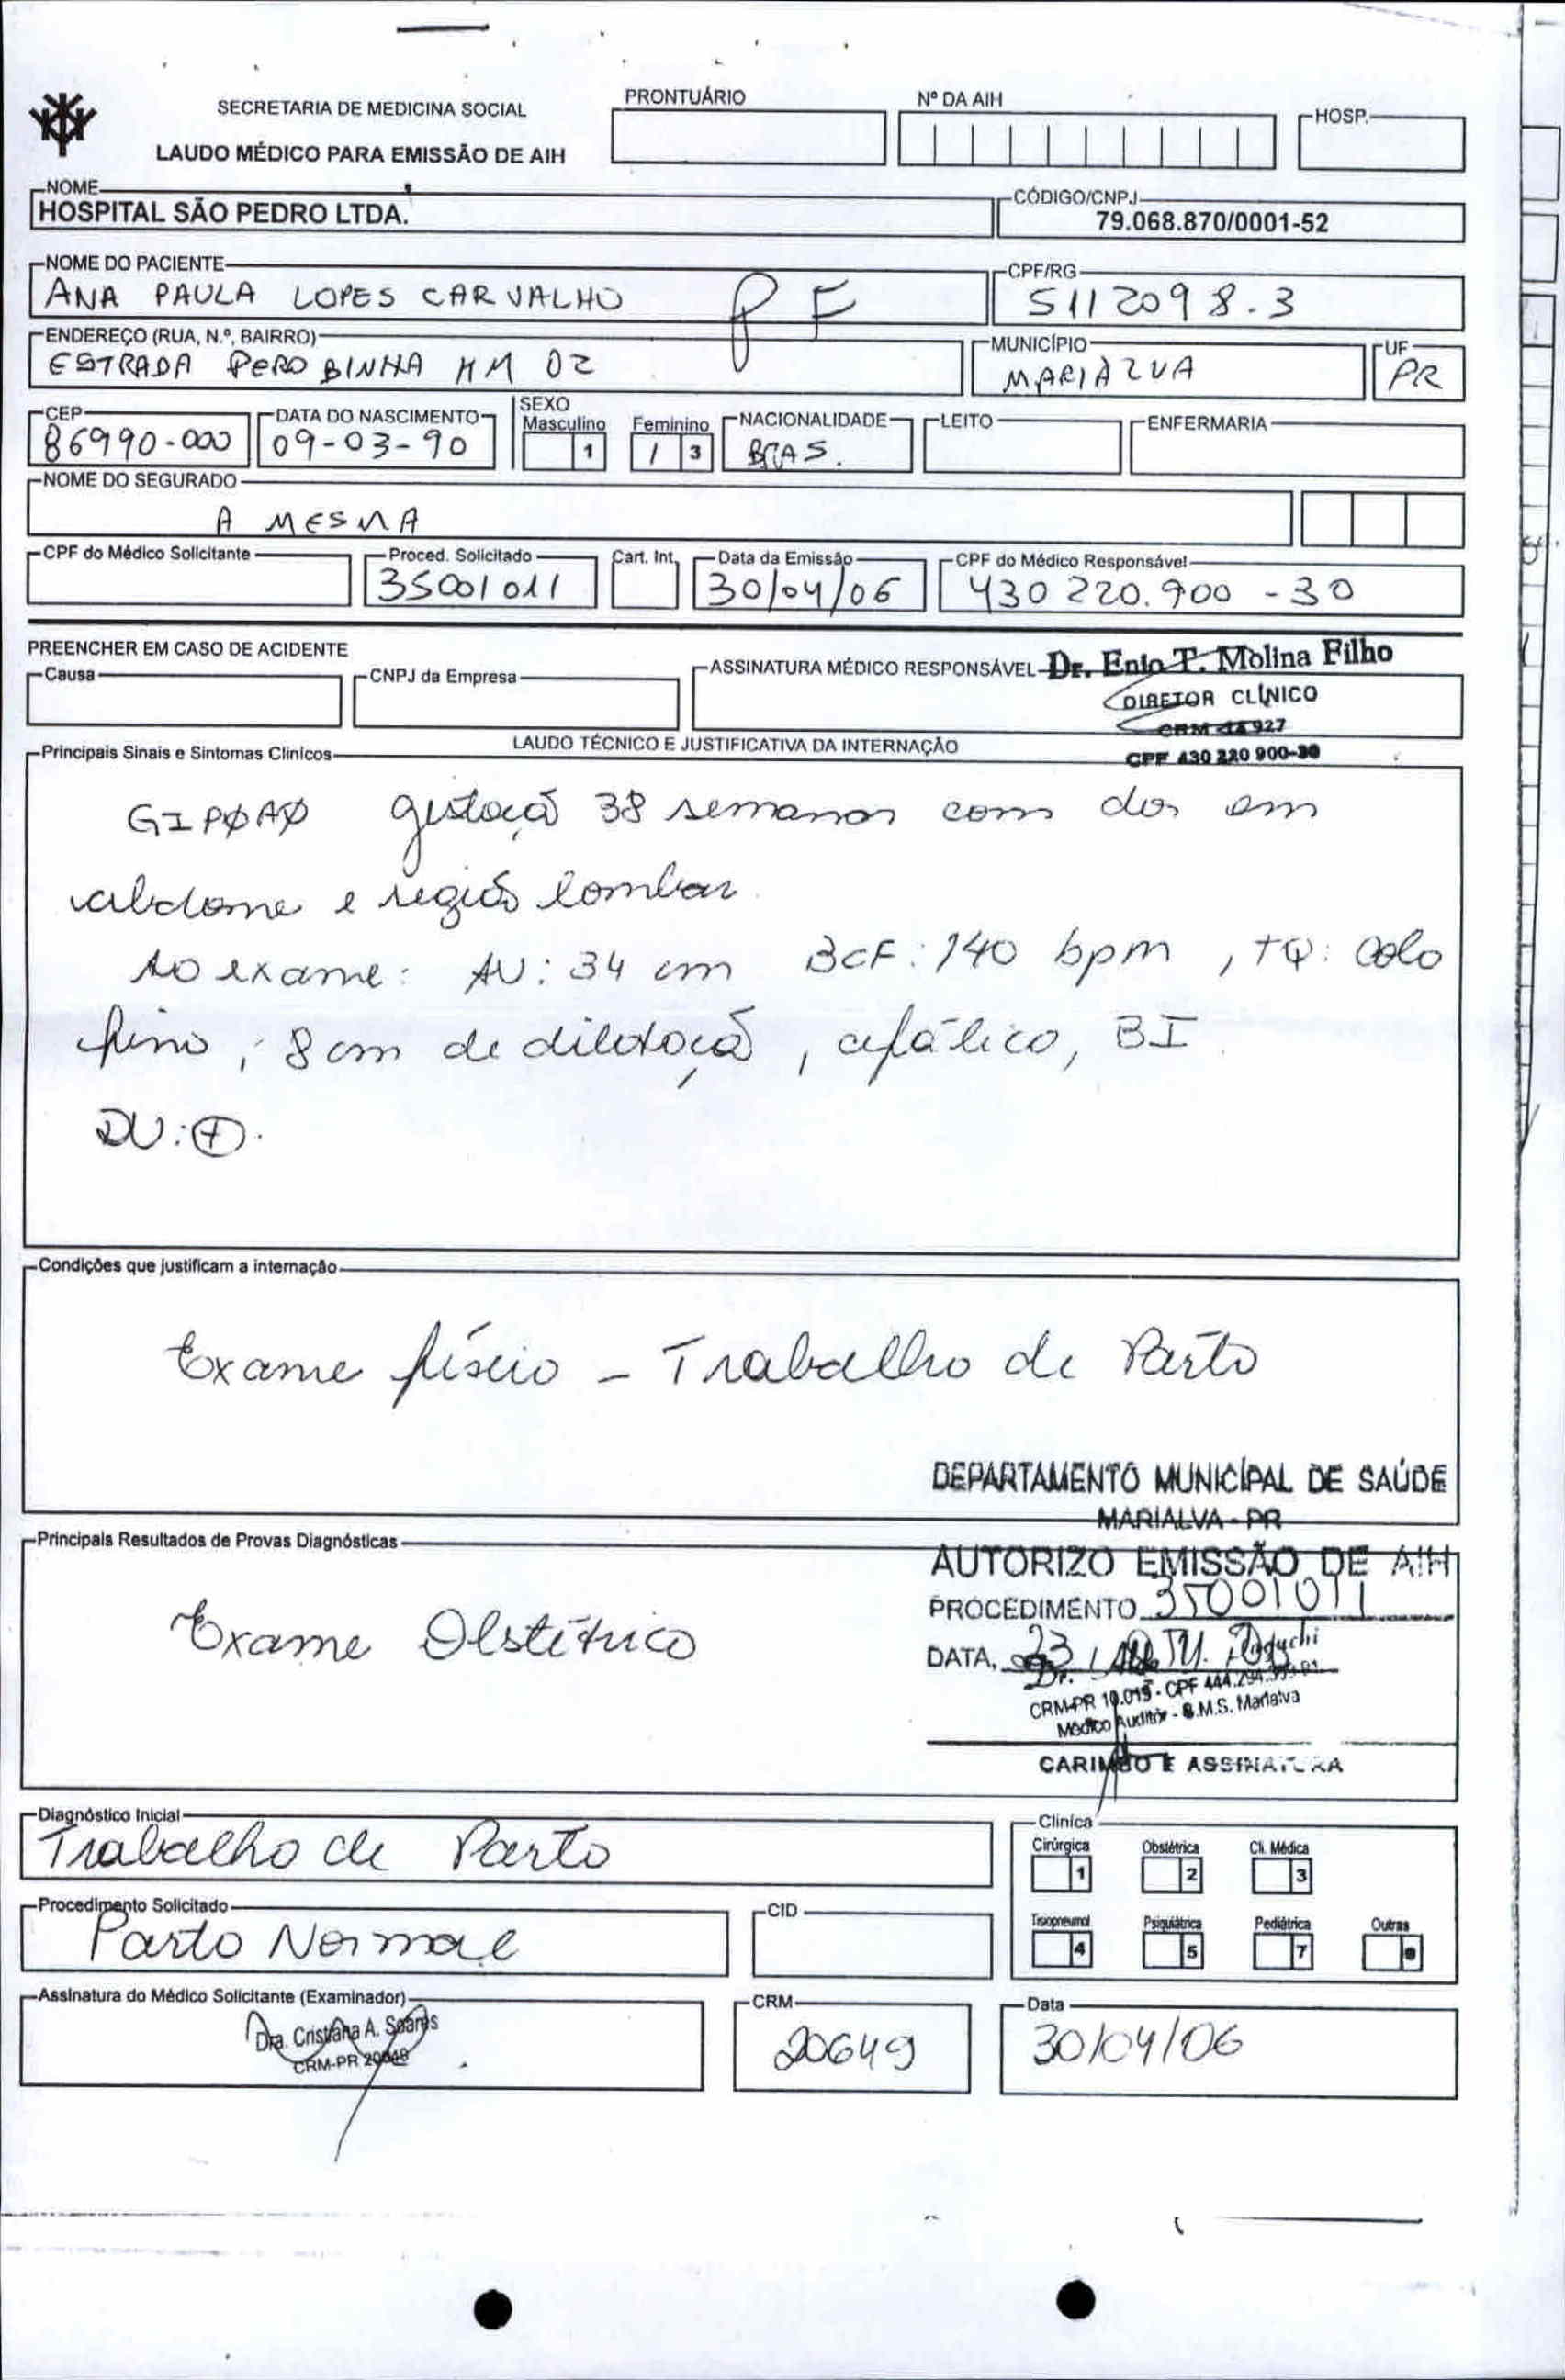 SECRETARIA DE MEDICINA SOCIAL
LAUDO MÉDICO PARA EMISSÃO DE AIH
PRONTUÁRIO
Nº DA AIH
HOSP.
NOME
HOSPITAL SÃO PEDRO LTDA.
CÓDIGO/CNPJ
79.068.870/0001-52
NOME DO PACIENTE
ANA PAULA LOPES CARVALHO
CPF/RG
5112098.3
ENDEREÇO (RUA, N.º, BAIRRO)
ESTRADA PEROBINHA KM 02
MUNICÍPIO
MARIALVA
UF
PR
CEP
86990-000
DATA DO NASCIMENTO
09-03-90
SEXO
Masculino 1
Feminino / 3
NACIONALIDADE
BRAS.
LEITO
ENFERMARIA
NOME DO SEGURADO
A MESMA
CPF do Médico Solicitante
Proced. Solicitado
35001011
Cart. Int.
Data da Emissão
30/04/06
CPF do Médico Responsável
430 220.900 - 30
PREENCHER EM CASO DE ACIDENTE
Causa
CNPJ da Empresa
ASSINATURA MÉDICO RESPONSÁVEL
Dr. Enio T. Molina Filho
DIRETOR CLÍNICO
CPF 430 220 900-30
LAUDO TÉCNICO E JUSTIFICATIVA DA INTERNAÇÃO
Principais Sinais e Sintomas Clinicos
GIPØAØ gestação 38 semanas com dor em
abdome e região lombar.
Ao exame: AU: 34 cm BCF: 140 bpm, TQ: colo
fino, 8 cm de dilatação, cefálico, BI
DU: +.
Condições que justificam a internação
Exame físico - Trabalho de Parto
DEPARTAMENTO MUNICIPAL DE SAÚDE
MARIALVA - PR
Principais Resultados de Provas Diagnósticas
Exame Obstétrico
AUTORIZO EMISSÃO DE AIH
PROCEDIMENTO 35001011
DATA,
CRM-PR 10.015 - CPF
Médico Auditor - S.M.S. Marialva
CARIMBO E ASSINATURA
Diagnóstico Inicial
Trabalho de Parto
Clínica
Cirúrgica 1
Obstétrica 2
Cli. Médica 3
Tisiopneumol 4
Psiquiátrica 5
Pediátrica 7
Outras
Procedimento Solicitado
Parto Normal
CID
Assinatura do Médico Solicitante (Examinador)
Dra. Cristiana A. Soares
CRM-PR
CRM
20649
Data
30/04/06